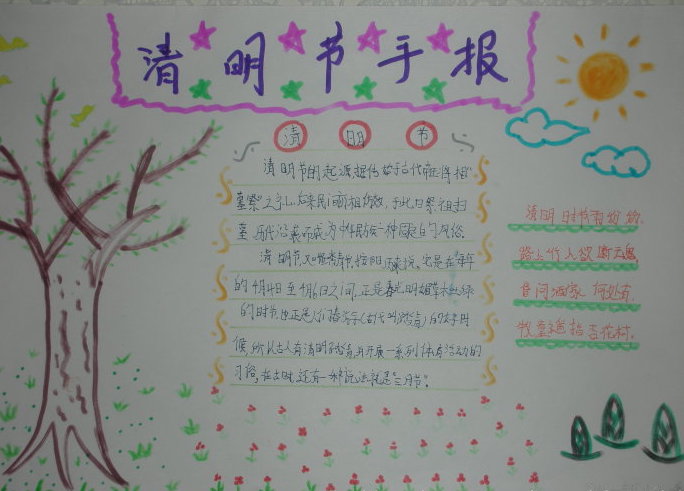 清明节手报
清明节
清明节的起源据传始于古代帝王将相
墓祭"之礼,后来民间亦相仿效,于此日祭祖扫
墓,历代沿袭而成为中华民族一种固定的风俗。
清明节,又叫踏青节,按阳历来说,它是在每年
的4月4日至4月6日之间,正是春光明媚草木吐绿
的时节,也正是人们踏春(古代叫踏青)的好时
候,所以古人有清明踏青,并开展一系列体育活动的
习俗,在古时,还有一种说法就是"三月节"。
清明时节雨纷纷,
路上行人欲断魂
借问酒家何处有,
牧童遥指杏花村.